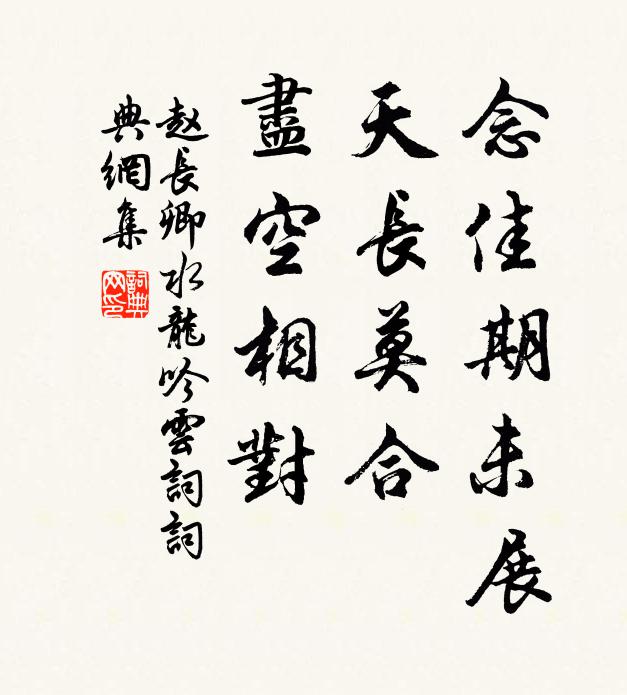 念佳期未展
天長莫合
盡空相對
赵長卿水龍吟雲詞詞
典網集
詞典网印